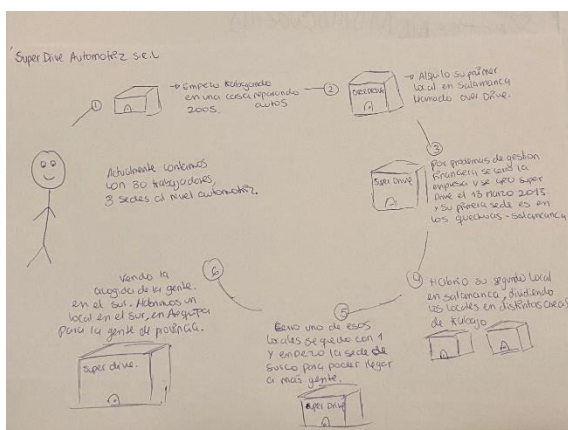 Super Drive Automotriz S.R.L
1
→ Empezo trabajando
en una casa reparando
2005. autos
2
OVERDRIVE
→ Alquilo su primer
local en Salamanca
llamado over Drive.
3
Super Drive
Por problemas de gestion
financiera se cerro la
empresa y se creo super
Drive el 13 marzo 2013.
y su primera sede es en
los quechuas - salamanca
4
Habrio su segundo local
en salamanca, dividiendo
los locales en distintas areas
de trabajo
5
Cerro uno de esos
locales se quedo con 1
y empezo la sede de
surco para poder llegar
a más gente.
Super Drive
6
Viendo la
acogida de la gente.
en el sur. Habrimos un
local en el sur, en Arequipa
para la gente de provincia.
super drive.
Actualmente contamos
con 30 trabajadores,
3 sedes al nivel automotriz.